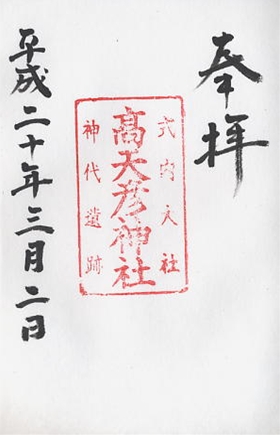 奉拝
式内大社
高天彦神社
神代遺跡
平成二十年三月二日